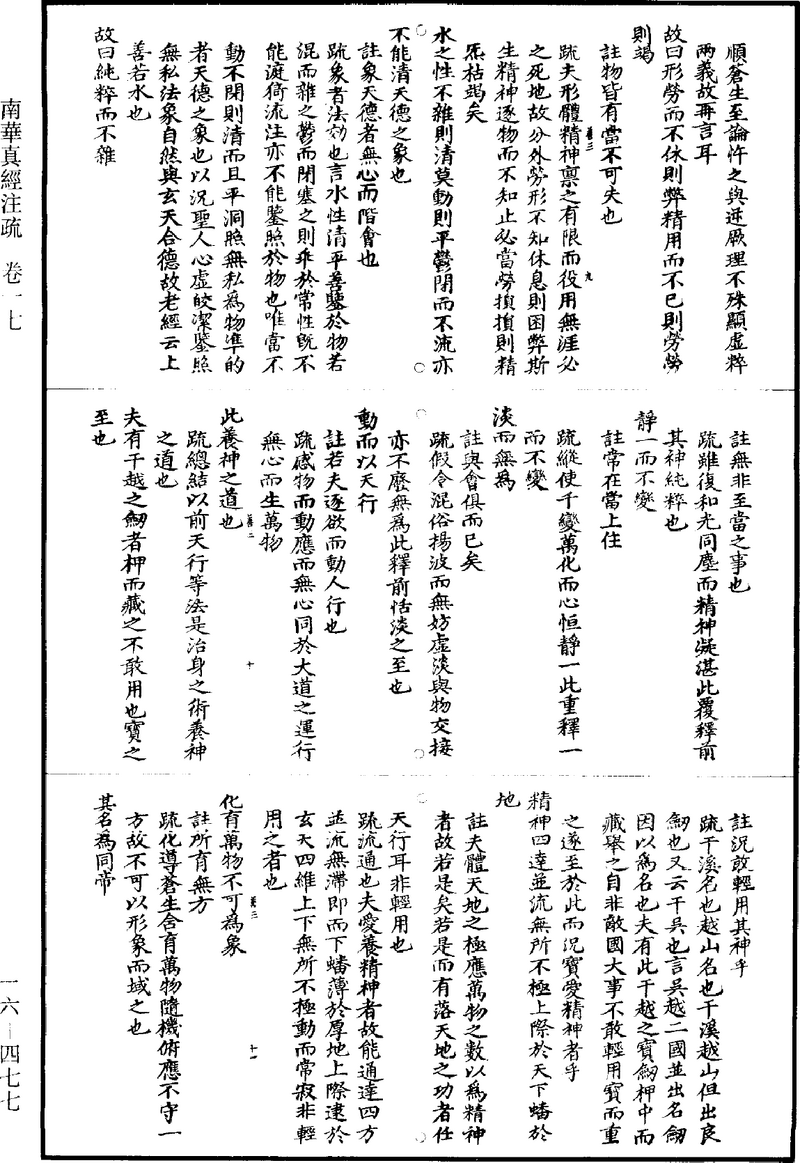 順蒼生至論忤之與逆厥理不殊顯虛粹
兩義故再言耳
故曰形勞而不休則弊精用而不已則勞勞
則竭
註物皆有當不可失也
疏夫形體精神稟之有限而役用無涯必
之死地故分外勞形不知休息則困弊斯
生精神逐物而不知止必當勞損損則精
炁枯竭矣
水之性不雜則清莫動則平鬱閉而不流亦
不能清天德之象也
註象天德者無心而階會也
疏象者法効也言水性清平善鑒於物若
混而雜之鬱而閉塞之則乖於常性既不
能漣猗流注亦不能鑒照於物也唯當不
動不閉則清而且平洞照無私為物準的
者天德之象也以況聖人心虛皎潔鑒照
無私法象自然與玄天合德故老經云上
善若水也
故曰純粹而不雜
註無非至當之事也
疏雖復和光同塵而精神凝湛此覆釋前
其神純粹也
靜一而不變
註常在當上住
疏縱使千變萬化而心恒靜一此重釋一
而不變
淡而無為
註與會俱而已矣
疏假令混俗揚波而無妨虛淡與物交接
亦不廢無為此釋前恬淡之至也
動而以天行
註若夫逐欲而動人行也
疏感物而動應而無心同於大道之運行
無心而生萬物
此養神之道也
疏總結以前天行等法是治身之術養神
之道也
夫有干越之劒者柙而藏之不敢用也寶之
至也
註況敢輕用其神乎
疏干溪名也越山名也干溪越山但出良
劒也又云干吳也言吳越二國並出名劒
因以為名也夫有此干越之寶劒柙中而
藏舉之自非敵國大事不敢輕用寶而重
之遂至於此而況寶愛精神者乎
精神四達並流無所不極上際於天下蟠於
地
註夫體天地之極應萬物之數以為精神
者故若是矣若是而有落天地之功者任
天行耳非輕用也
疏流通也夫愛養精神者故能通達四方
並流無滯即而下蟠薄於厚地上際逮於
玄天四維上下無所不極動而常寂非輕
用之者也
化育萬物不可為象
註所育無方
疏化導蒼生含育萬物隨機俯應不守一
方故不可以形象而域之也
其名為同帝
南華真經注疏 卷一七
一六—四七七